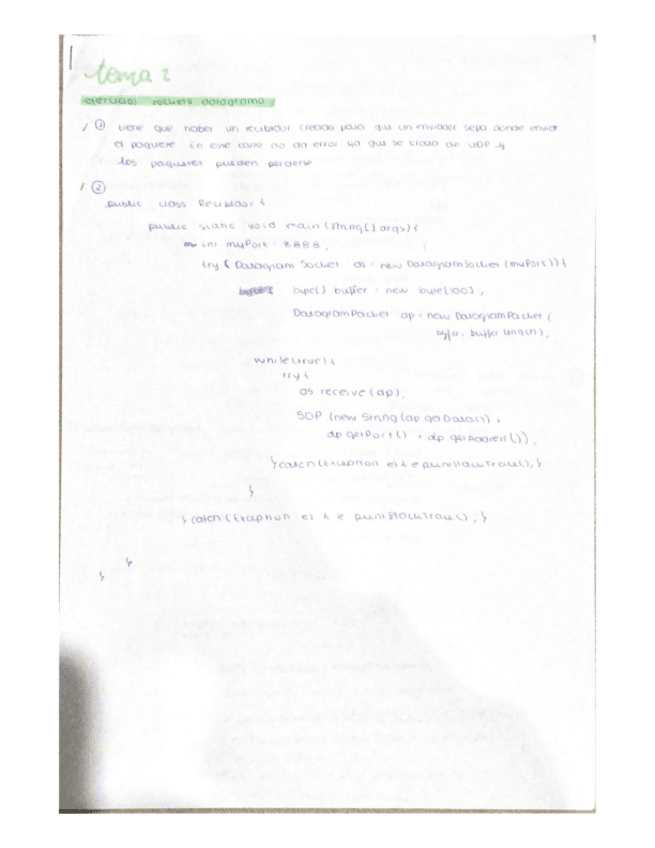 tema 2
ejercicios sockets datagrama:
① tiene que haber un recibidor creado para que un enviador sepa donde enviar
el paquete. En este caso no da error ya que se trata de UDP y
los paquetes pueden perderse
②
public class Recibidor {
public static void main (String[] args) {
int myPort = 8888;
try { DatagramSocket ds = new DatagramSocket (myPort)) {
byte[] buffer = new byte[100];
DatagramPacket dp = new DatagramPacket (
buffer.length);
while (true) {
try {
ds.receive (dp);
SOP (new String (dp.getData()) +
dp.getPort() + dp.getAddress());
} catch (Exception e) { e.printStackTrace(); }
}
} catch (Exception e) { e.printStackTrace(); }
}
}